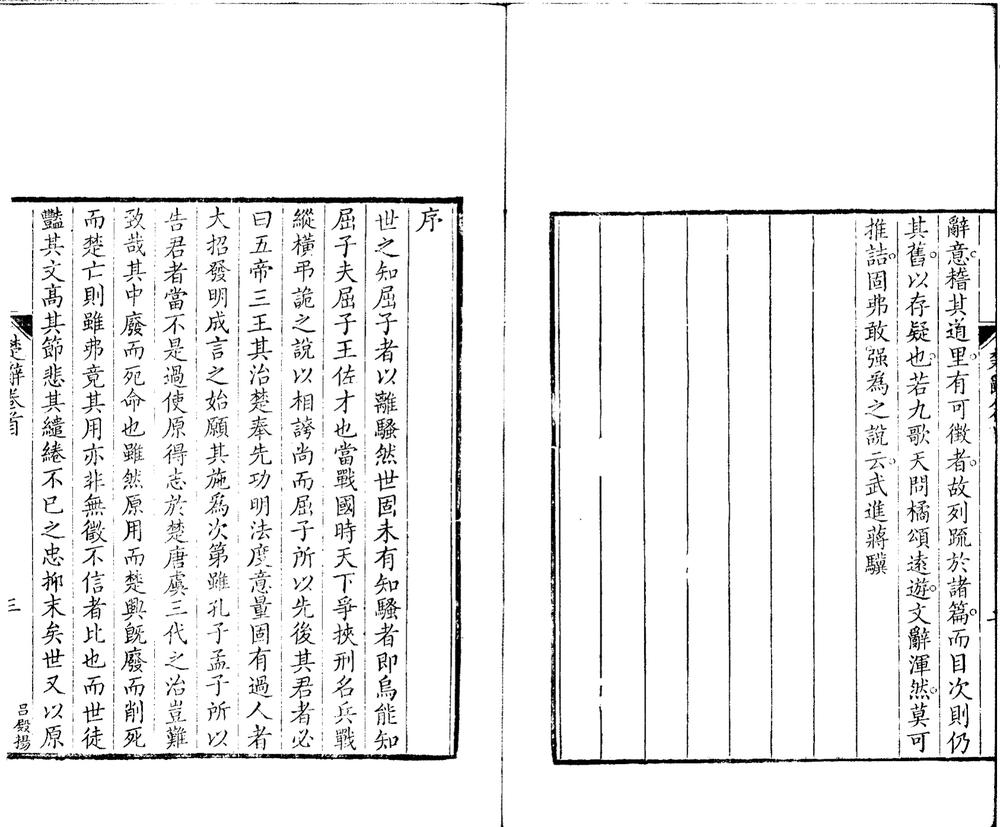 辭意稽其道里有可徵者故列疏於諸篇而目次則仍
其舊以存疑也若九歌天問橘頌遠遊文辭渾然莫可
推詰固弗敢强爲之說云武進蔣驥
序
世之知屈子者以離騷然世固未有知騷者即烏能知
屈子夫屈子王佐才也當戰國時天下爭挾刑名兵戰
縱橫弔詭之說以相誇尚而屈子所以先後其君者必
曰五帝三王其治楚奉先功明法度意量固有過人者
大招發明成言之始願其施爲次第雖孔子孟子所以
告君者當不是過使原得志於楚唐虞三代之治豈難
致哉其中廢而死命也雖然原用而楚興旣廢而削死
而楚亡則雖弗竟其用亦非無徵不信者比也而世徒
豔其文高其節悲其繾綣不已之忠抑末矣世又以原
楚辭卷首
三
呂殿揚